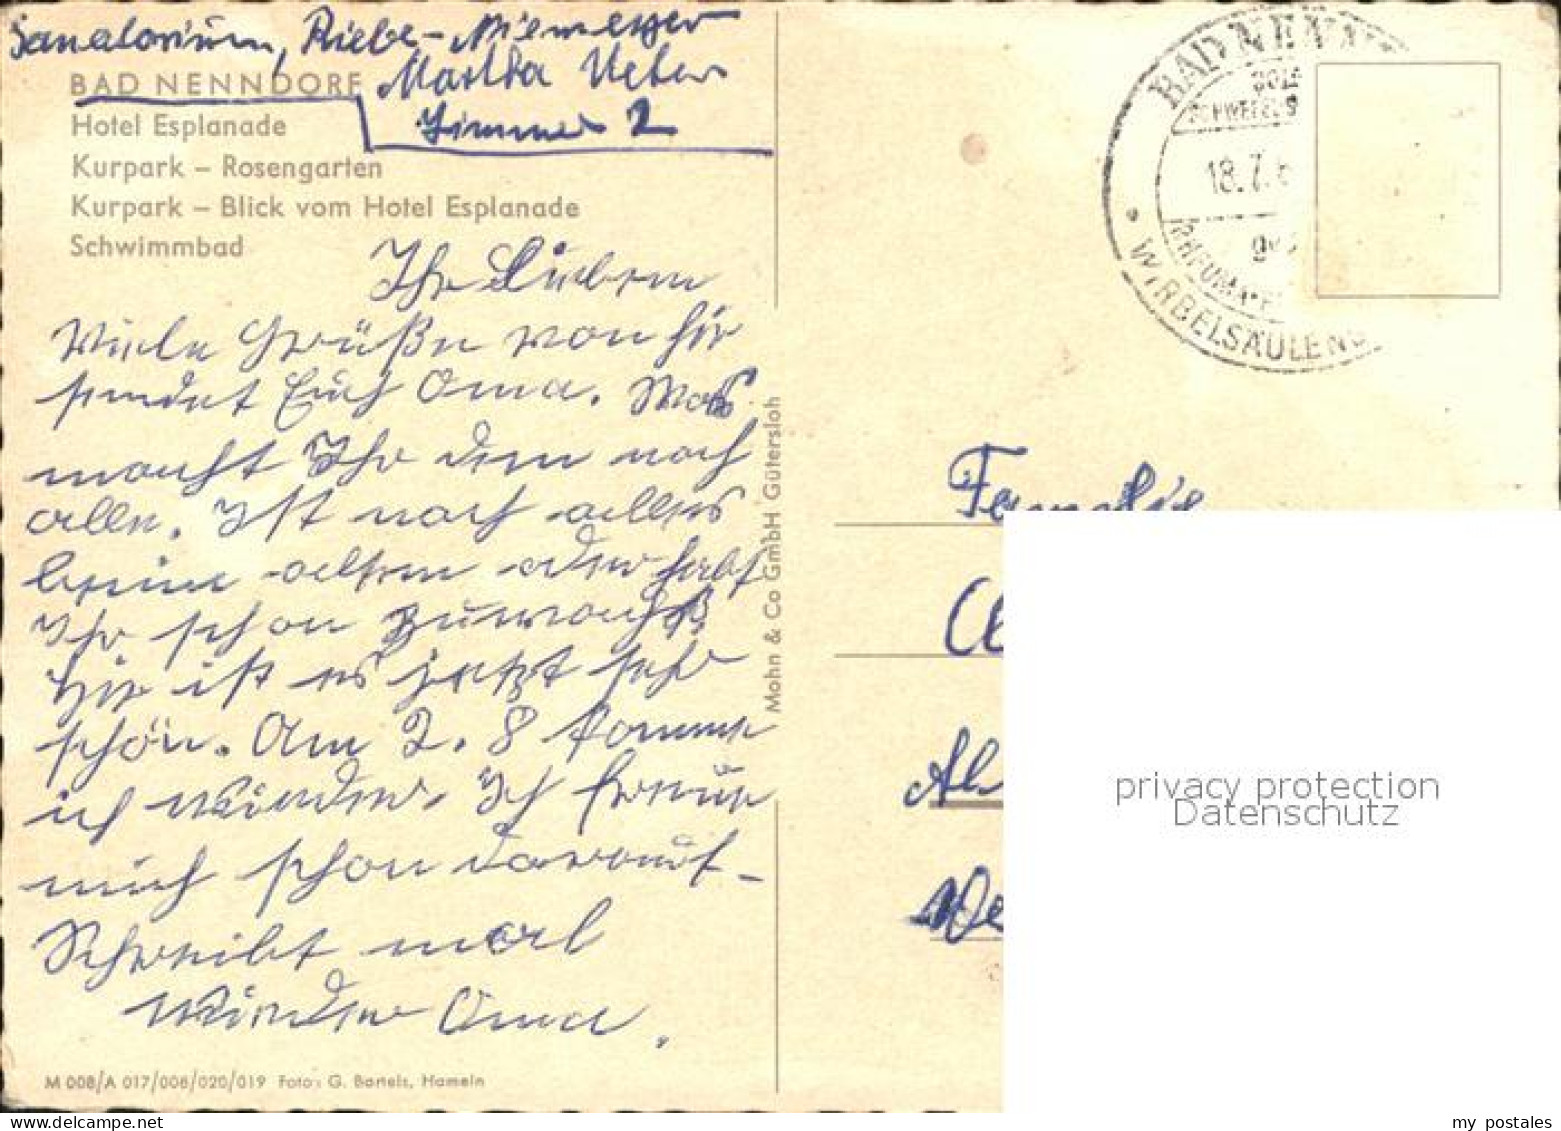 Sanatorium, Riebe-Niemeyer
Martha Ueber
Zimmer 2
BAD NENNDORF
Hotel Esplanade
Kurpark – Rosengarten
Kurpark – Blick vom Hotel Esplanade
Schwimmbad
Ihr Lieben
Viele Grüße von hir
sendet Euch Oma. Was
macht Ihr denn noch
alle. Ist noch alles
beim alten oder habt
Ihr schon Zuwachs
Hir ist es jetzt sehr
schön. Am 2. 8 komme
ich wieder. Ich freue
mich schon darauf –
Schreibt mal
wieder Oma.
M 008/A 017/008/020/019 Foto: G. Bartels, Hameln
Mohn & Co GmbH Gütersloh
BAD NENN
SOL
SCHWEFEL S
18.7.6
geg
RHEUMA
WIRBELSÄULEN
Familie
Al
We
privacy protection
Datenschutz
my postales